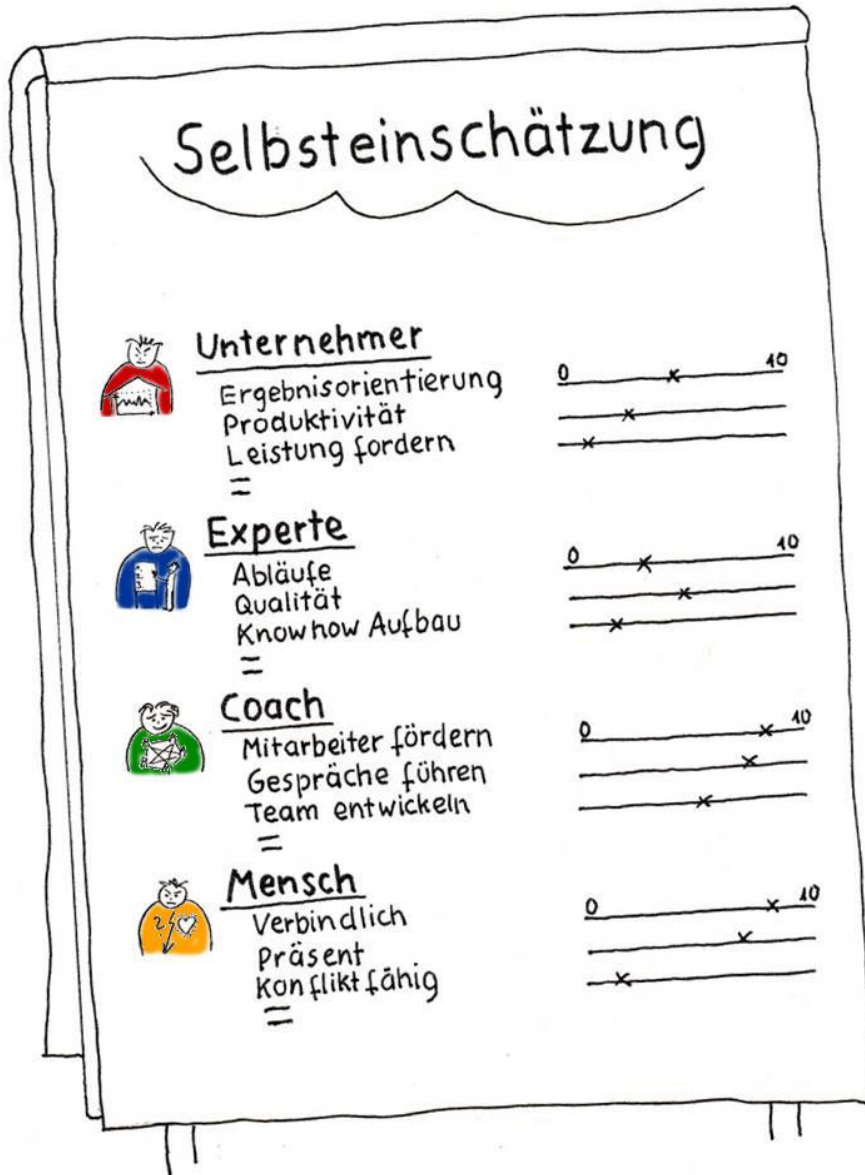 Selbsteinschätzung
Unternehmer
0 10
Ergebnisorientierung
Produktivität
Leistung fordern
Experte
0 10
Abläufe
Qualität
Knowhow Aufbau
Coach
0 10
Mitarbeiter fördern
Gespräche führen
Team entwickeln
Mensch
0 10
Verbindlich
Präsent
Konfliktfähig